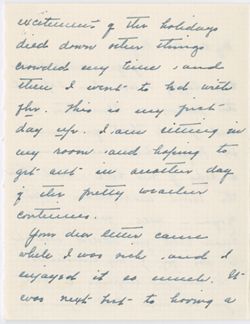 excitement of the holidays
died down other things
crowded my time, and
then I went to bed with
flu. This is my first
day up. I am sitting in
my room and hoping to
get out in another day
if this pretty weather
continues.
Your dear letter came
while I was sick, and I
enjoyed it so much. It
was next best to having a